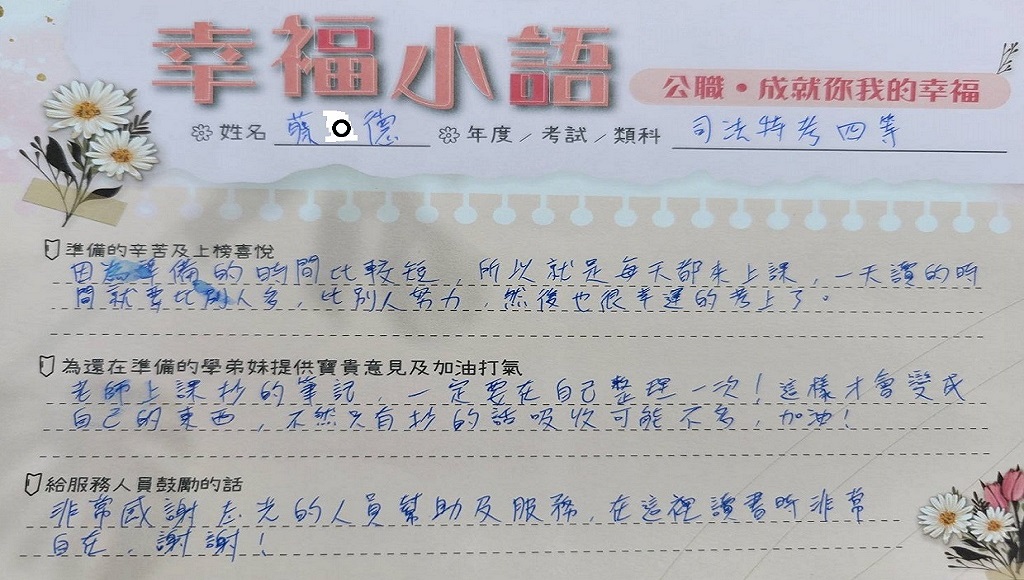 幸福小語
公職•成就你我的幸福
姓名 蔡○德 年度／考試／類科 司法特考四等
準備的辛苦及上榜喜悅
因為準備的時間比較短，所以就是每天都來上課，一天讀的時
間就要比別人多，比別人努力，然後也很幸運的考上了。
為還在準備的學弟妹提供寶貴意見及加油打氣
老師上課抄的筆記，一定要在自己整理一次！這樣才會變成
自己的東西，不然只有抄的話吸收可能不多，加油！
給服務人員鼓勵的話
非常感謝志光的人員幫助及服務，在這裡讀書時非常
自在，謝謝！